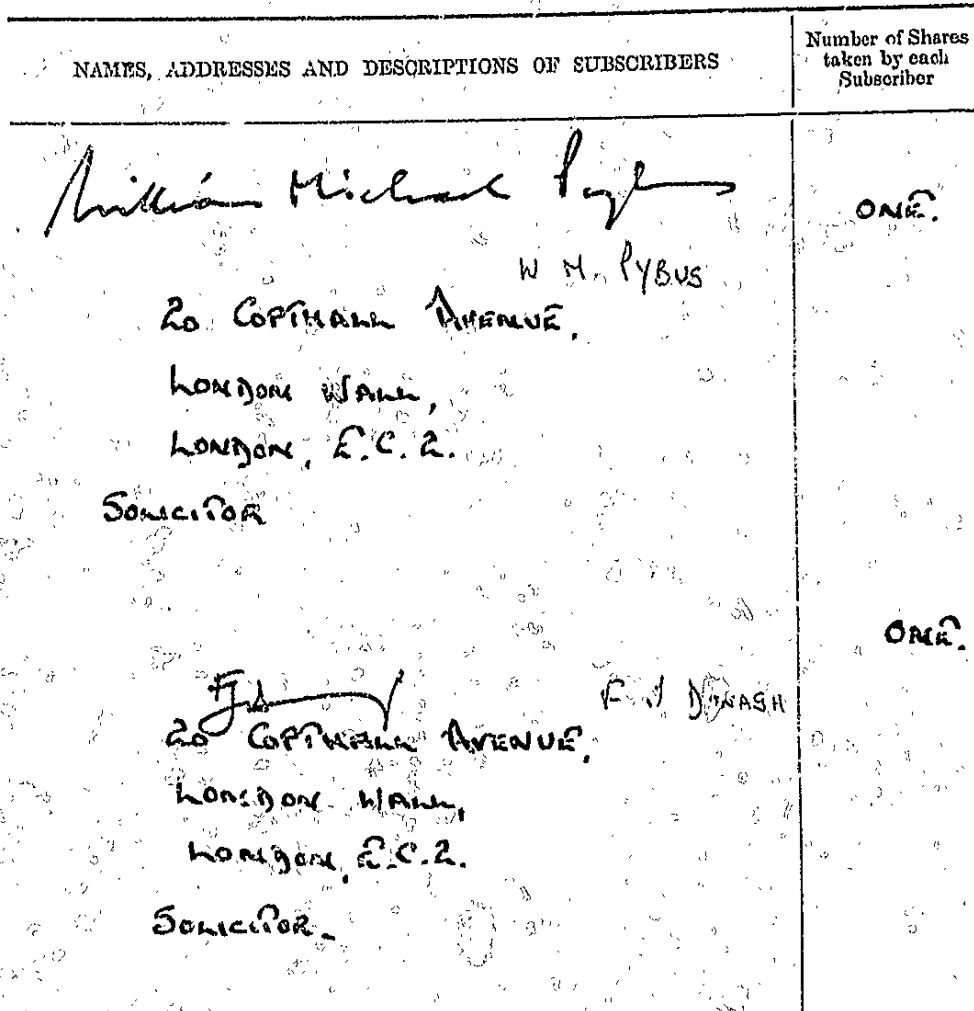 NAMES, ADDRESSES AND DESCRIPTIONS OF SUBSCRIBERS
Number of Shares
taken by each
Subscriber
William Michael Pybus
ONE.
W M. PYBUS
20 COPTHALL AVENUE,
LONDON WALL,
LONDON, E.C.2.
SOLICITOR
ONE.
F J
20 COPTHALL AVENUE,
LONDON WALL,
LONDON, E.C.2.
SOLICITOR.